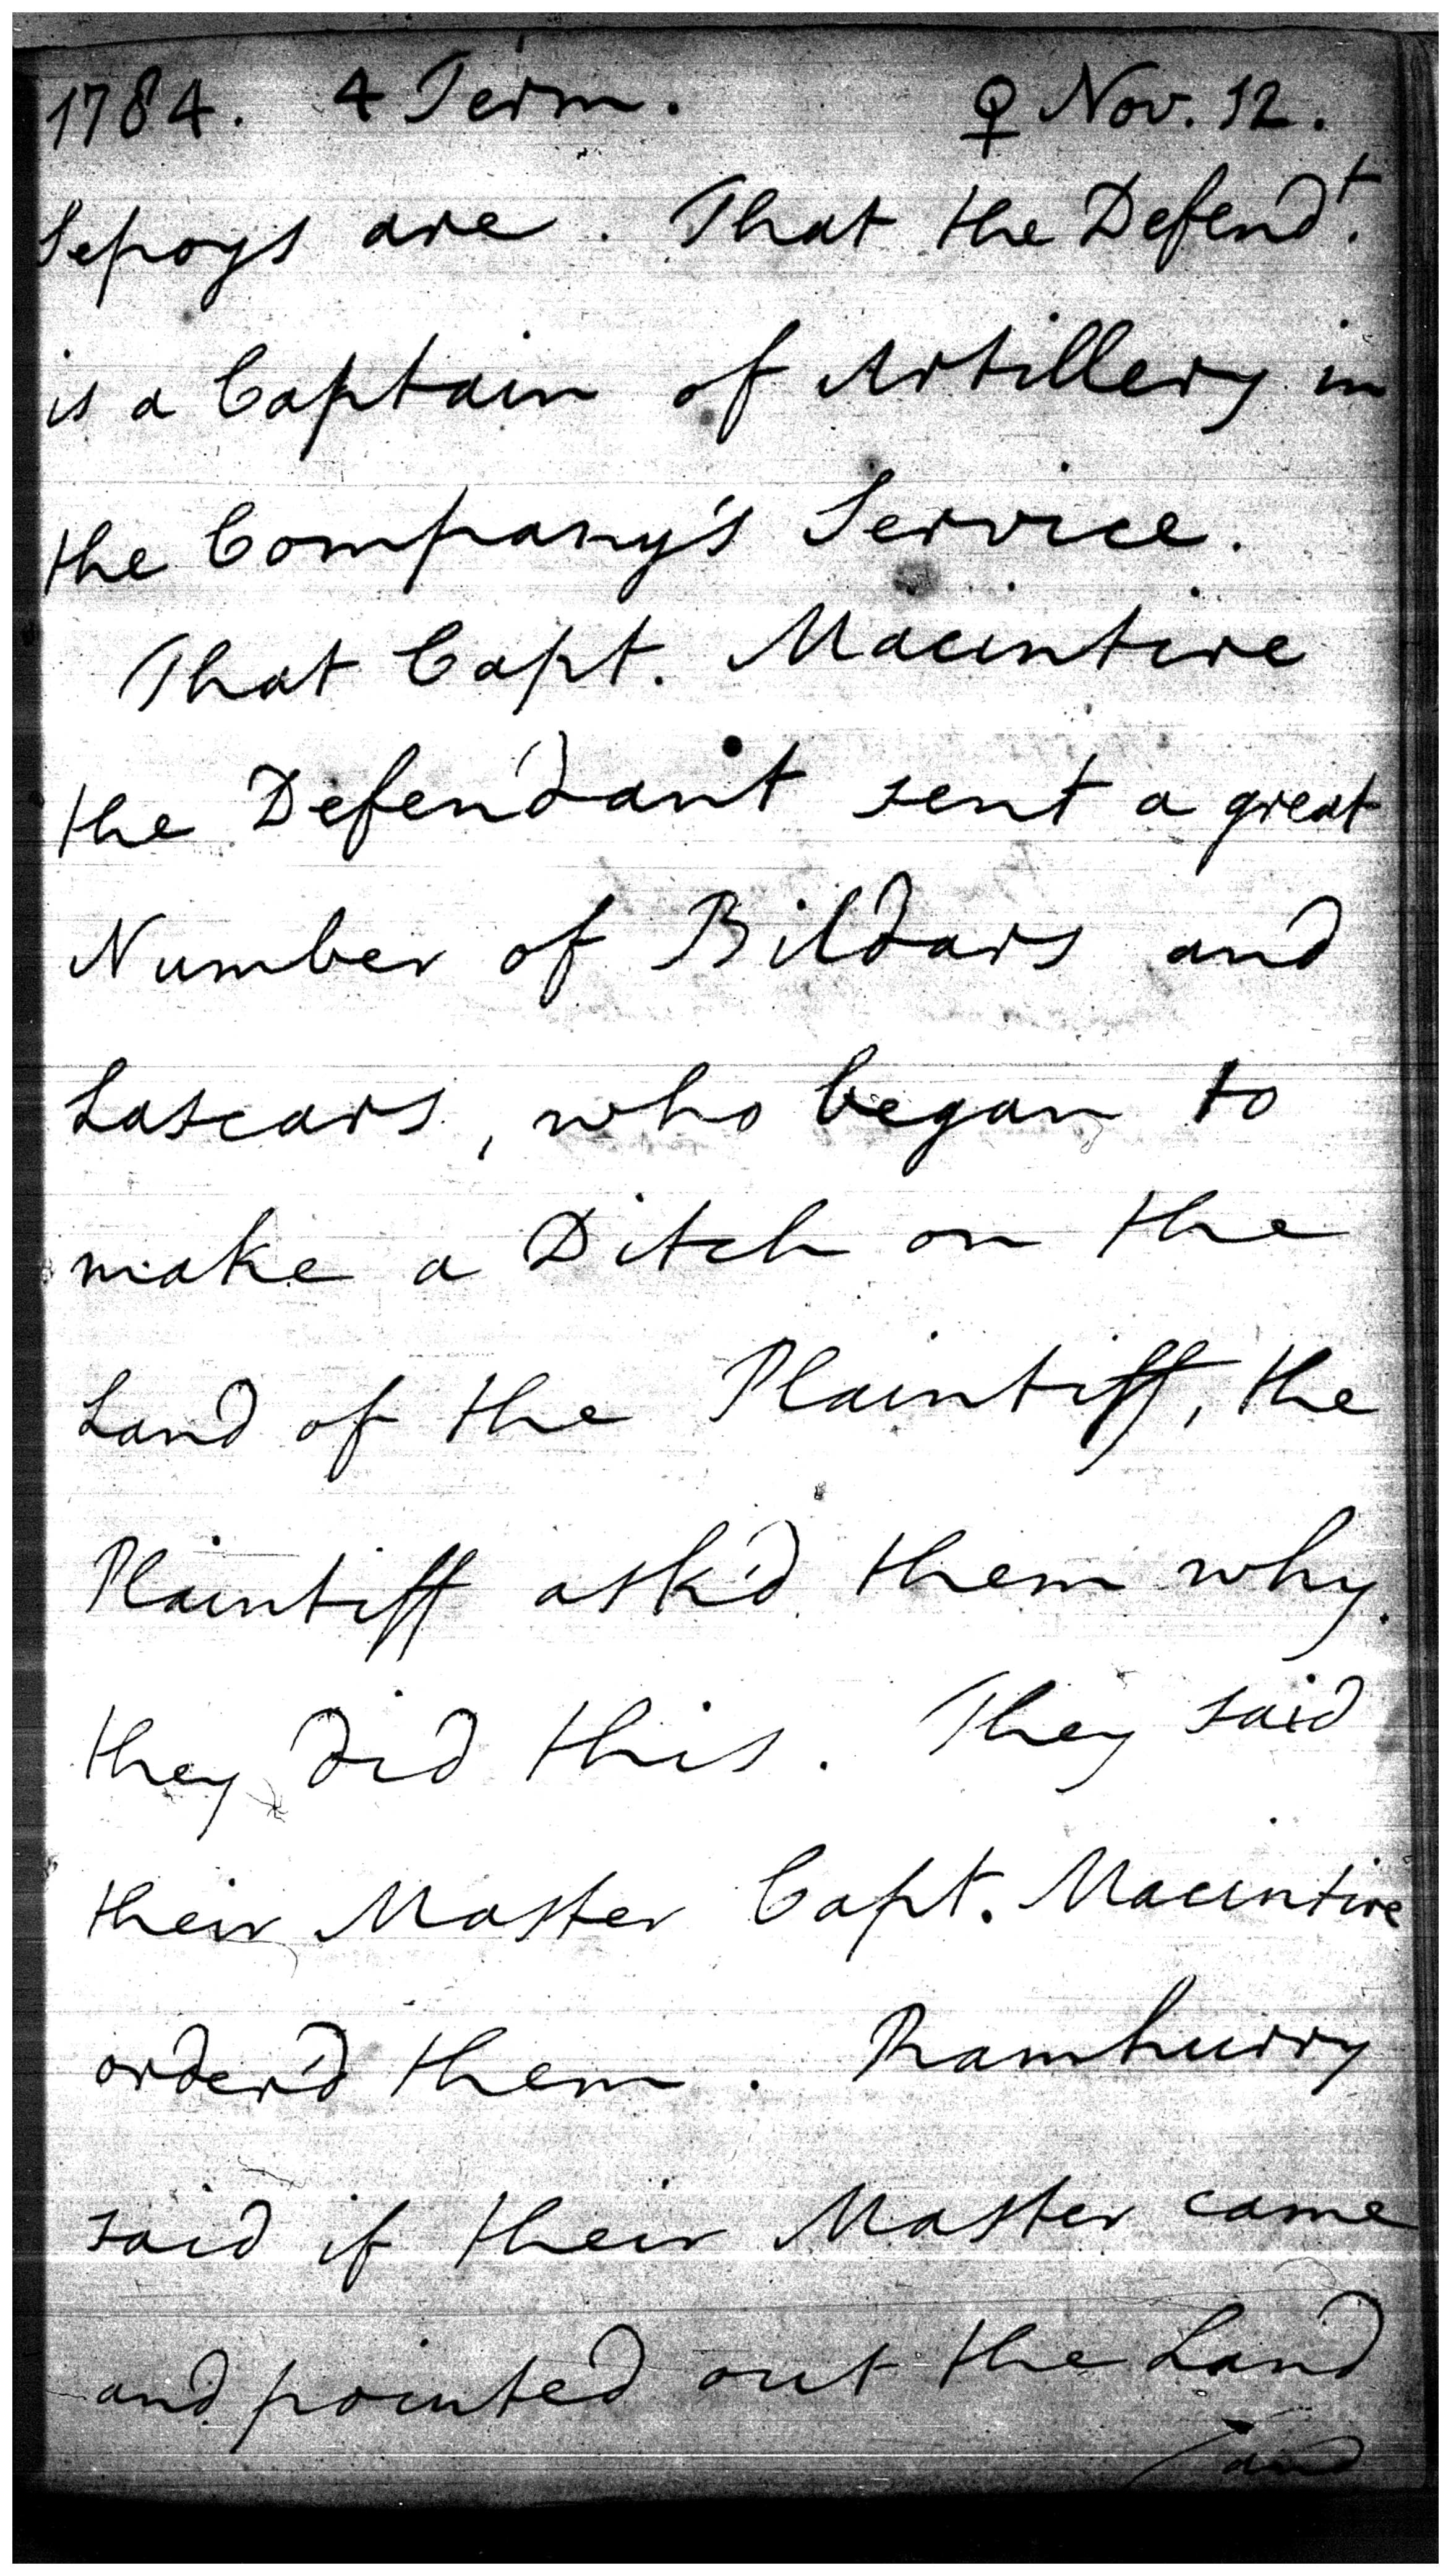 1784. 4 Term. ♀ Nov. 12.
Sepoys are. That the Defend.t
is a Captain of Artillery in
the Company's Service.
That Capt. Macintire
the Defendant sent a great
Number of Bildars and
Lascars, who began to
make a Ditch on the
Land of the Plaintiff, the
Plaintiff ask'd them why
they did this. They said
their Master Capt. Macintire
order'd them. Ramhurry
said if their Master came
and pointed out the Land
and